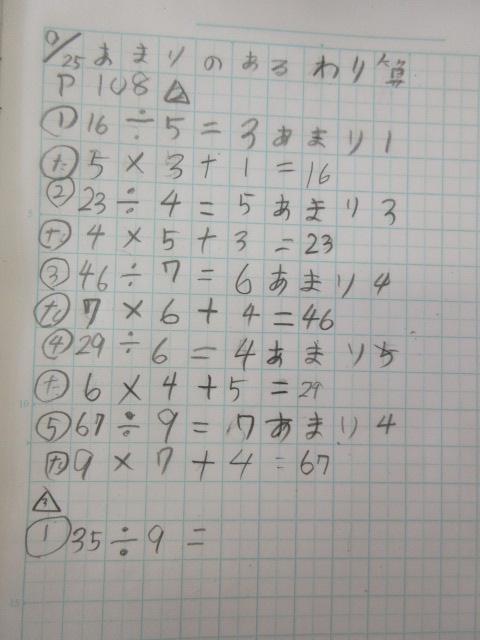 9/25 あまりのあるわり算
P 108 △2
① 16 ÷ 5 = 3 あまり 1
㋟ 5 × 3 + 1 = 16
② 23 ÷ 4 = 5 あまり 3
㋟ 4 × 5 + 3 = 23
③ 46 ÷ 7 = 6 あまり 4
㋟ 7 × 6 + 4 = 46
④ 29 ÷ 6 = 4 あまり 5
㋟ 6 × 4 + 5 = 29
⑤ 67 ÷ 9 = 7 あまり 4
㋟ 9 × 7 + 4 = 67
△3
① 35 ÷ 9 =